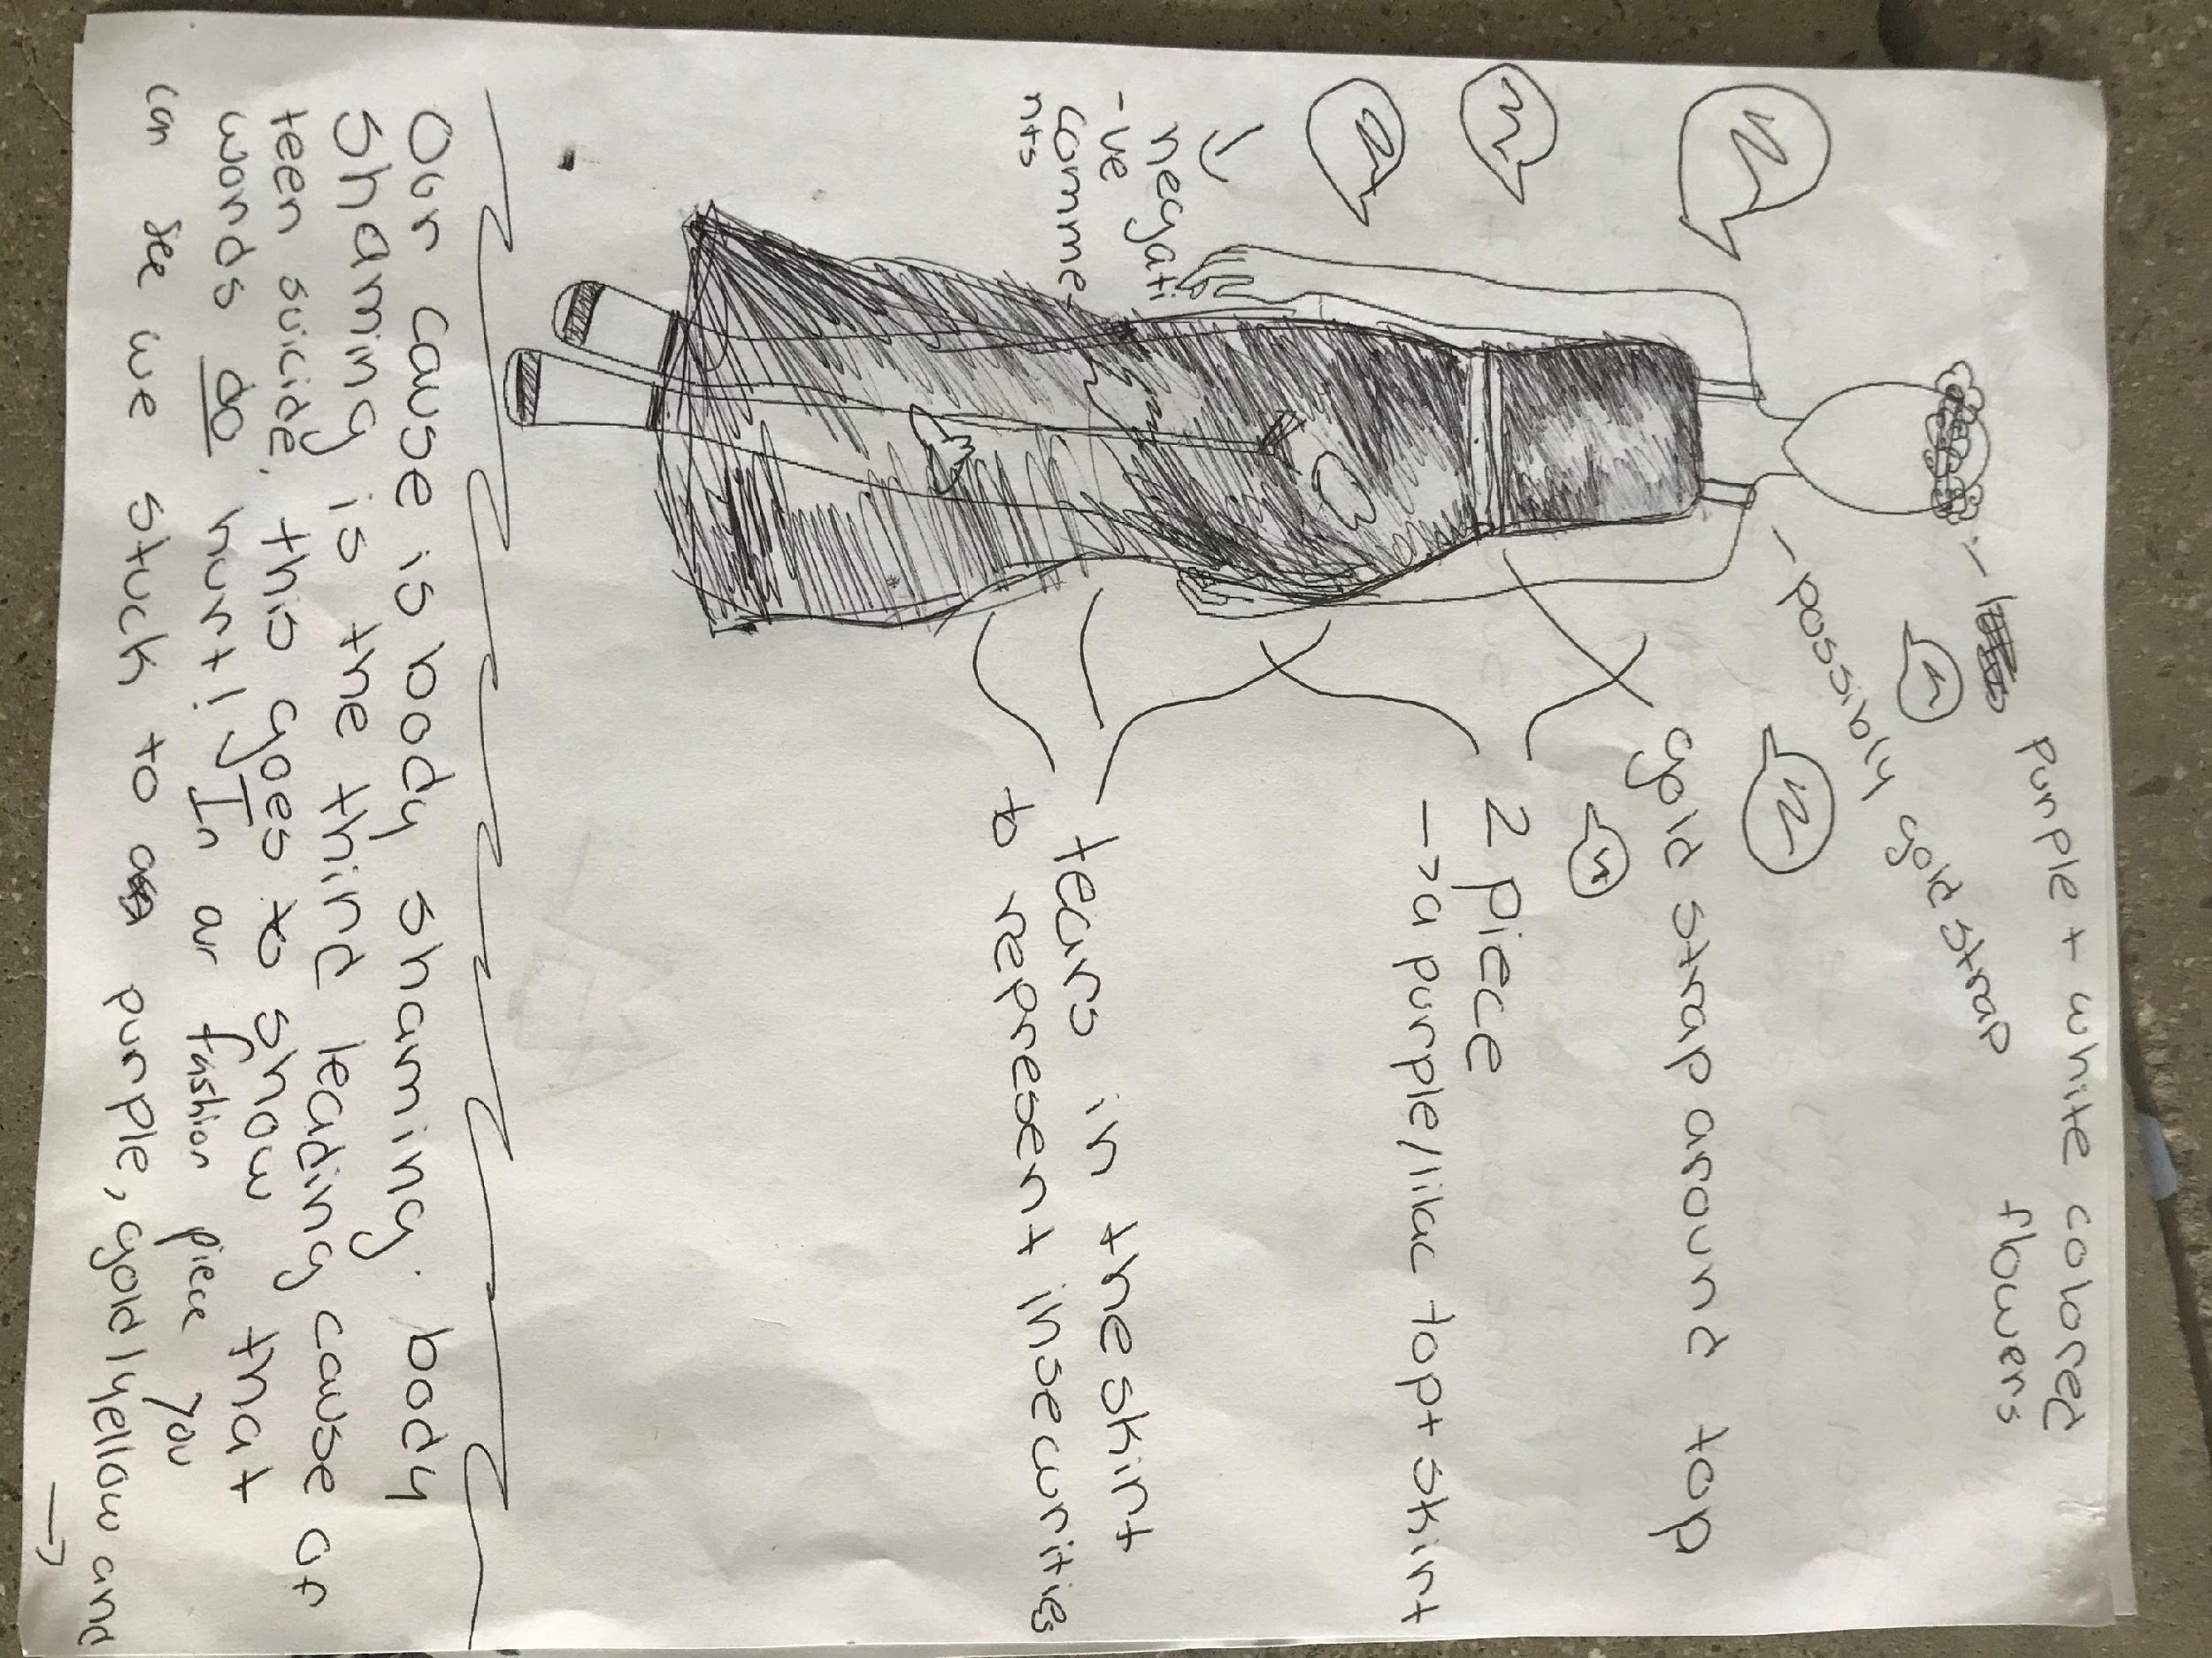 purple + white colored
flowers
- possibly gold strap
gold strap around top
2 piece
-> a purple/lilac top + skirt
negati
-ve
comme
nts
tears in the skirt
to represent insecurities
Our cause is body shaming. body
shaming is the third leading cause of
teen suicide. this goes to show that
words do hurt! In our fashion piece you
can see we stuck to a purple, gold/yellow and